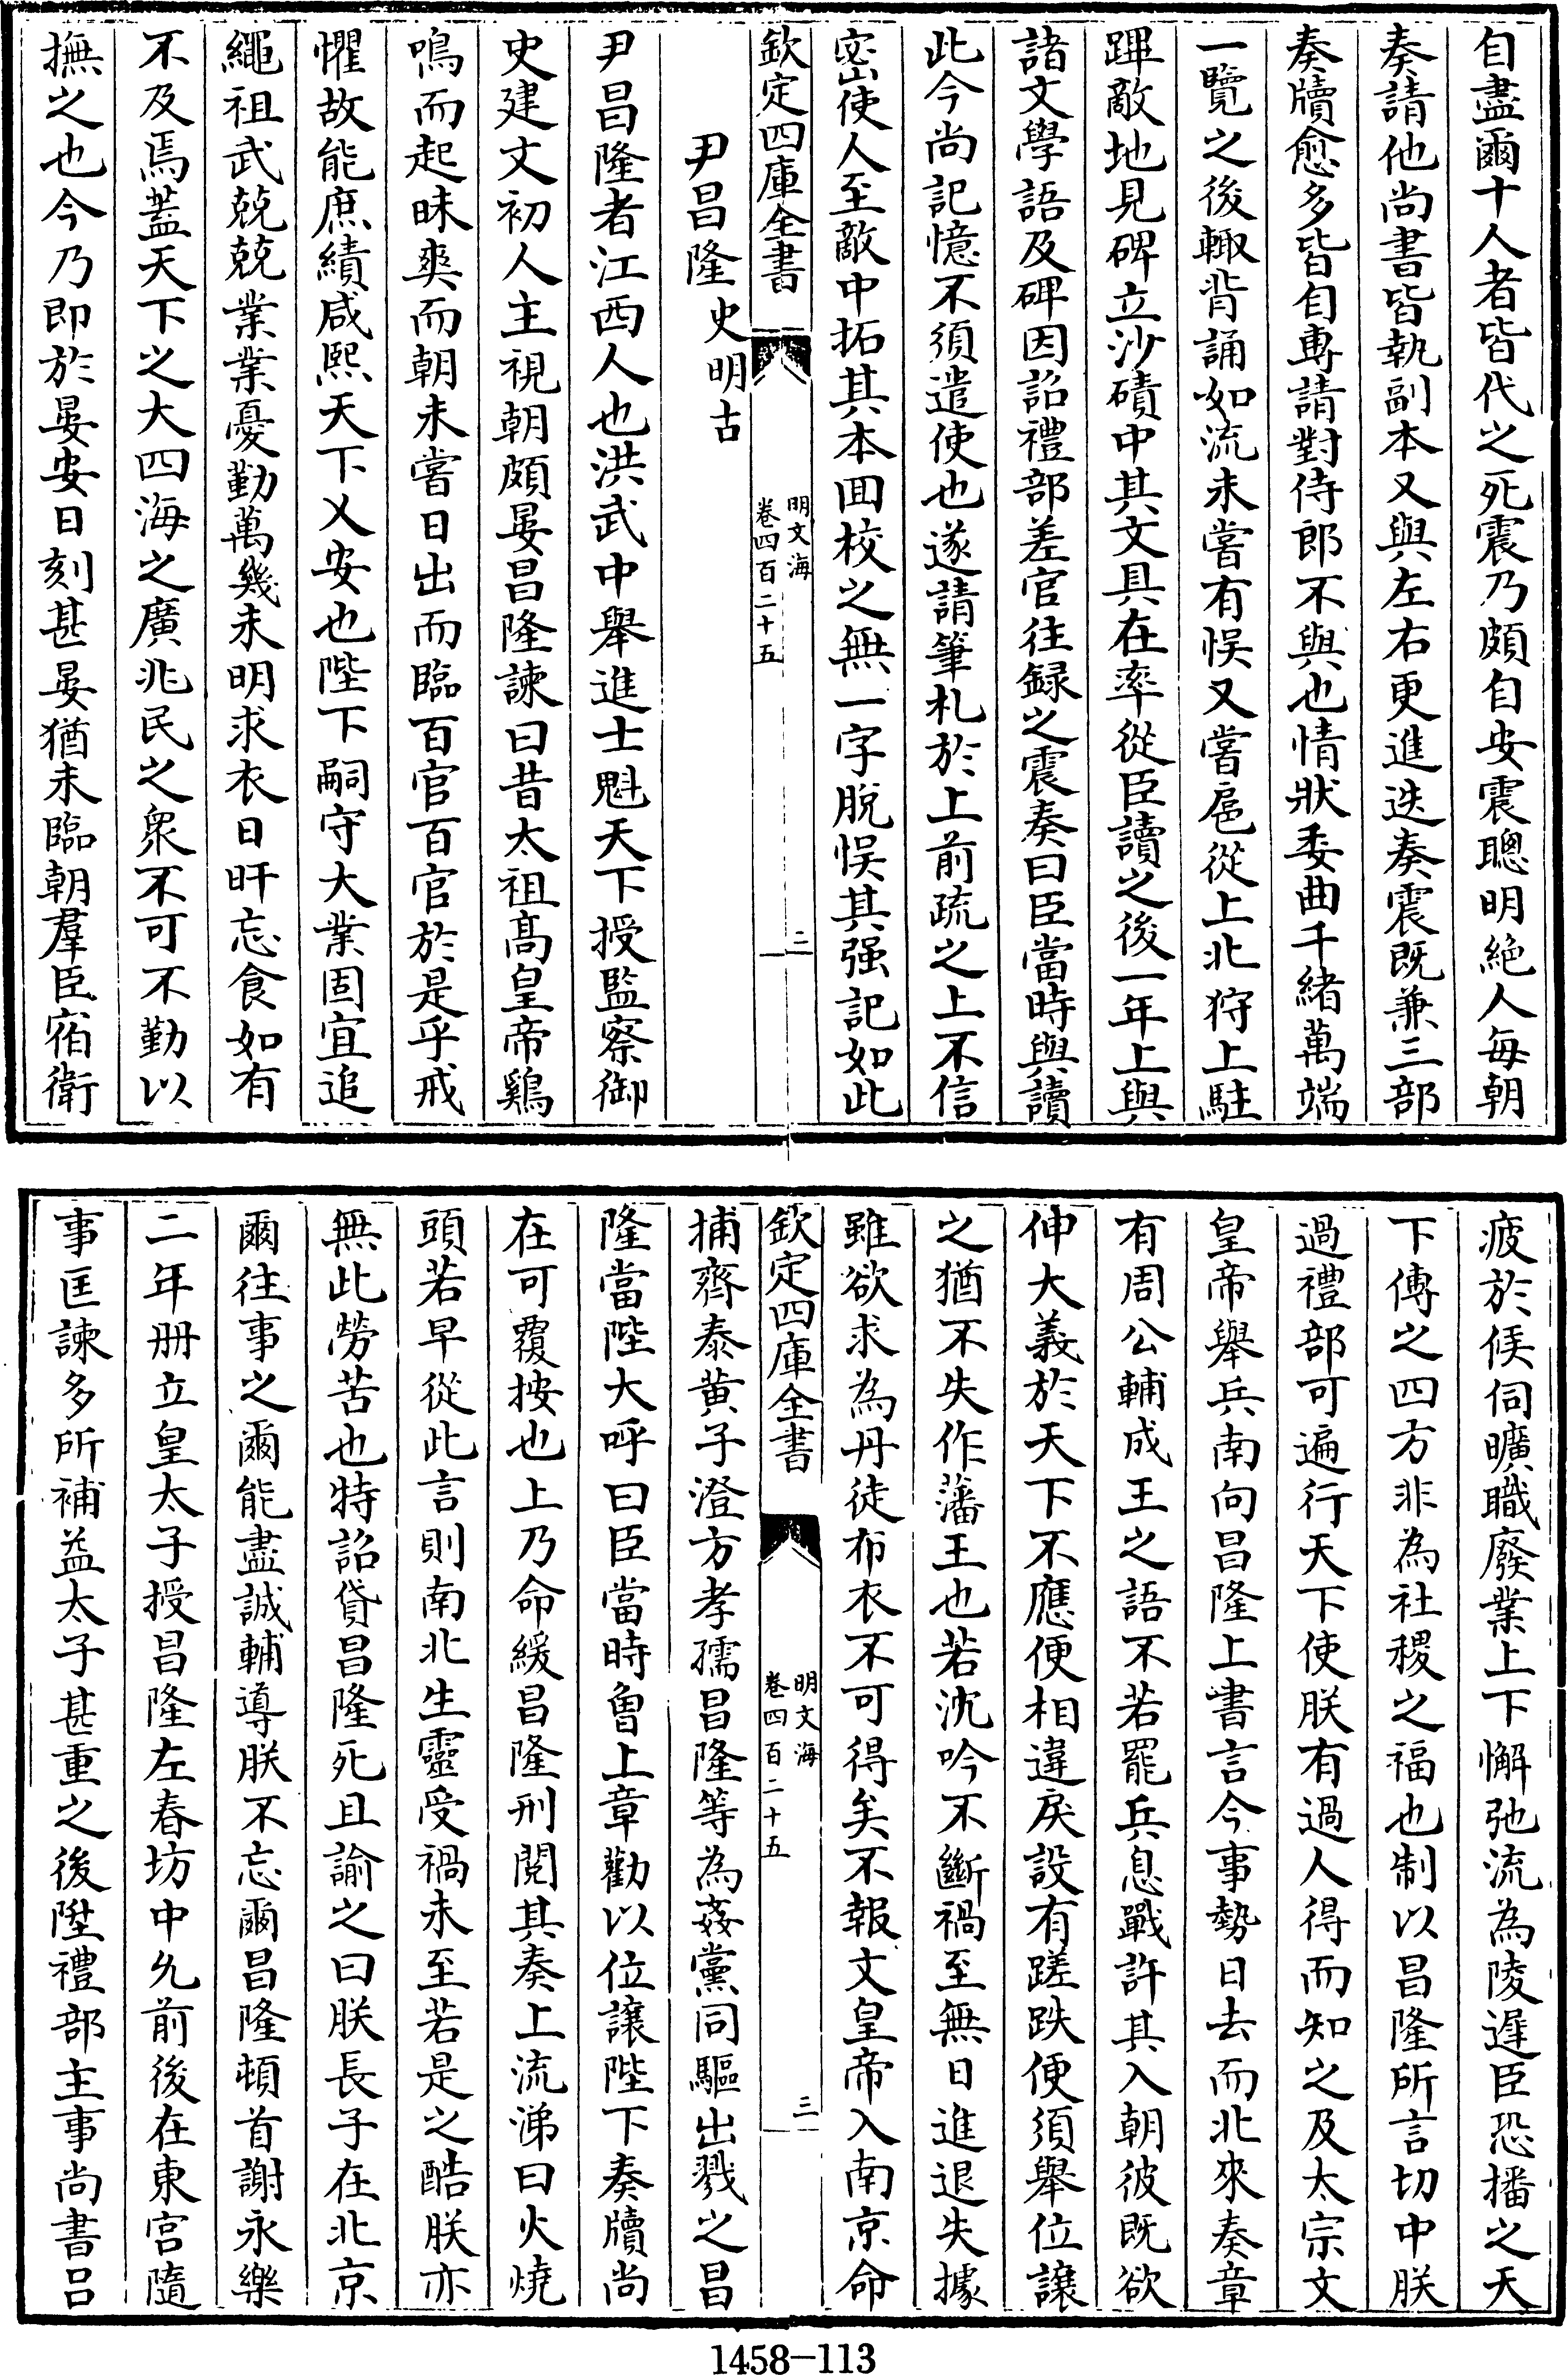 自盡爾十人者皆代之死震乃頗自安震聰明絶人每朝
奏請他尚書皆執副本又與左右更進迭奏震既兼三部
奏牘愈多皆自專請對侍郎不與也情狀委曲千緒萬端
一覽之後輙背誦如流未嘗有悞又嘗扈從上北狩上駐
蹕敵地見碑立沙磧中其文具在率從臣讀之後一年上與
諸文學語及碑因詔禮部差官往録之震奏曰臣當時與讀
此今尚記憶不須遣使也遂請筆札於上前疏之上不信
密使人至敵中拓其本囬校之無一字脱悞其强記如此
欽定四庫全書
明文海
卷四百二十五
二
尹昌隆 史明古
尹昌隆者江西人也洪武中舉進士魁天下授監察御
史建文初人主視朝頗晏昌隆諫曰昔太祖髙皇帝鷄
鳴而起昧爽而朝未嘗日出而臨百官百官於是乎戒
懼故能庶績咸熙天下乂安也陛下嗣守大業固宜追
繩祖武兢兢業業憂勤萬幾未明求衣日旰忘食如有
不及焉蓋天下之大四海之廣兆民之衆不可不勤以
撫之也今乃即於晏安日刻甚晏猶未臨朝羣臣宿衛
疲於候伺曠職廢業上下懈弛流為陵遲臣恐播之天
下傳之四方非為社稷之福也制以昌隆所言切中朕
過禮部可遍行天下使朕有過人得而知之及太宗文
皇帝舉兵南向昌隆上書言今事勢日去而北來奏章
有周公輔成王之語不若罷兵息戰許其入朝彼既欲
伸大義於天下不應便相違戾設有蹉跌便須舉位讓
之猶不失作藩王也若沈吟不斷禍至無日進退失據
雖欲求為丹徒布衣不可得矣不報文皇帝入南京命
欽定四庫全書
明文海
卷四百二十五
三
捕齊泰黄子澄方孝孺昌隆等為姦黨同驅出戮之昌
隆當陛大呼曰臣當時曾上章勸以位讓陛下奏牘尚
在可覆按也上乃命緩昌隆刑閱其奏上流涕曰火燒
頭若早從此言則南北生靈受禍未至若是之酷朕亦
無此勞苦也特詔貸昌隆死且諭之曰朕長子在北京
爾往事之爾能盡誠輔導朕不忘爾昌隆頓首謝永樂
二年册立皇太子授昌隆左春坊中允前後在東宫隨
事匡諫多所補益太子甚重之後陞禮部主事尚書吕
1458—113